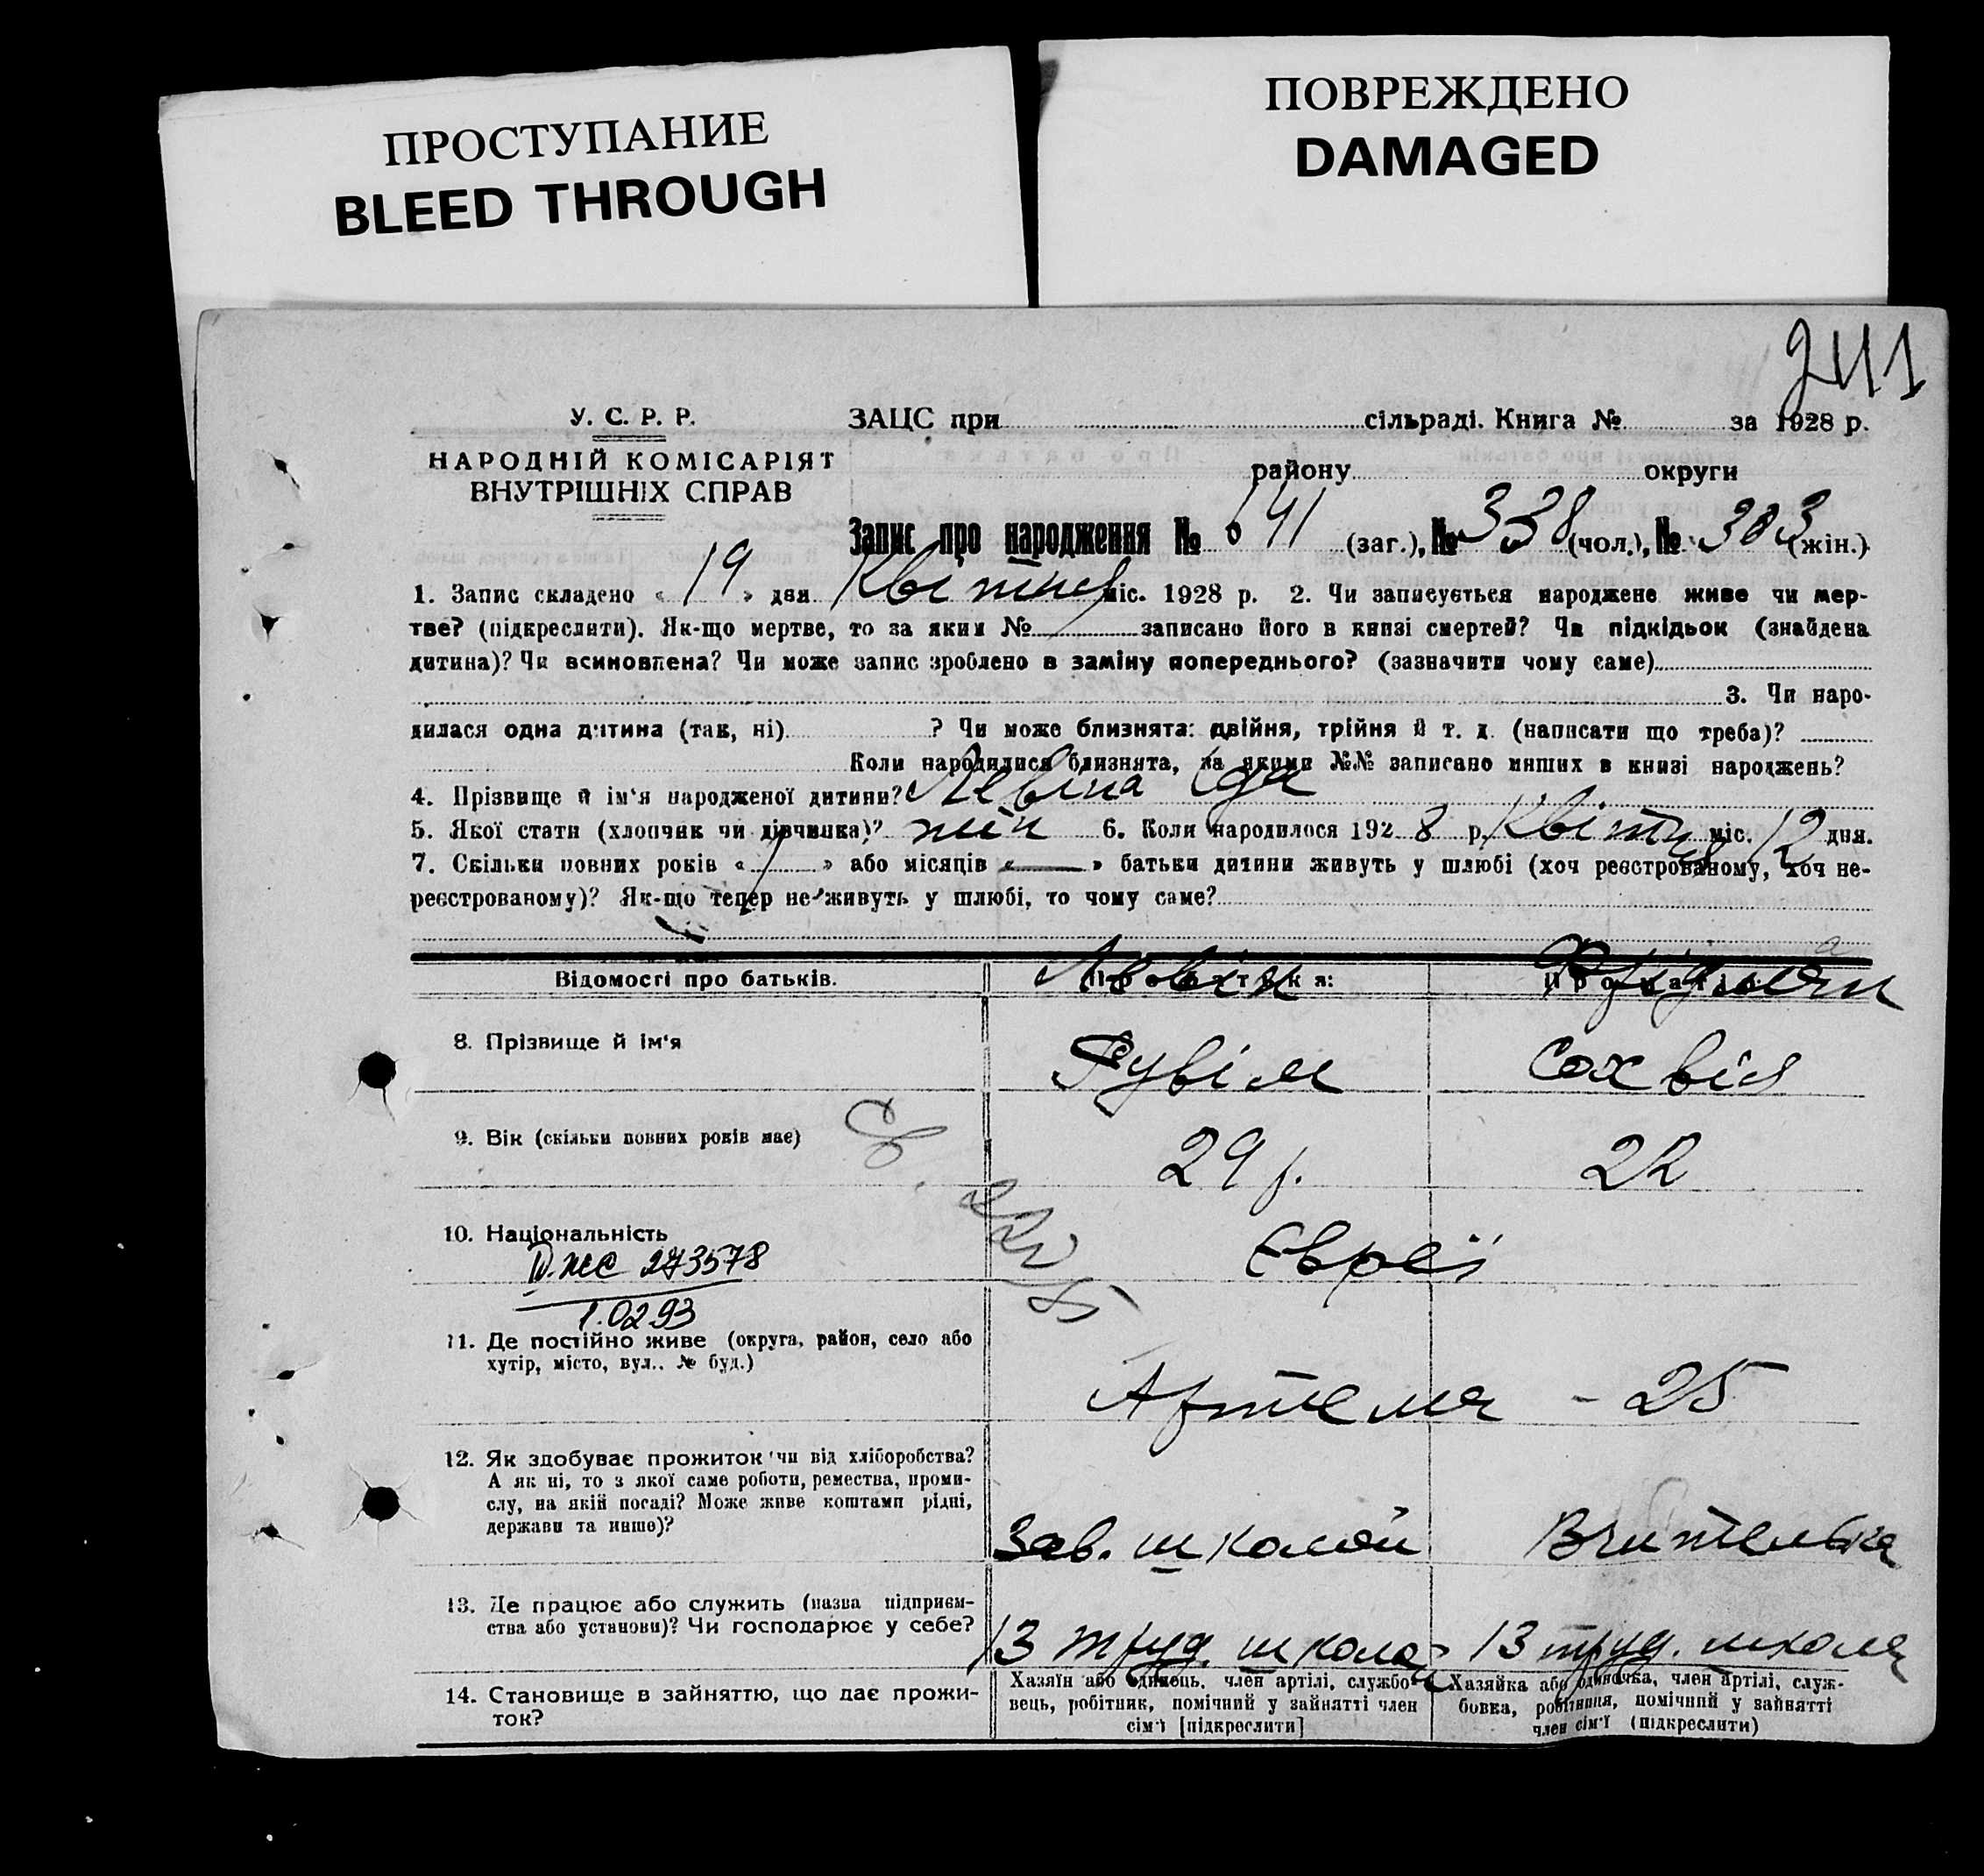 ПРОСТУПАНИЕ
BLEED THROUGH
ПОВРЕЖДЕНО
DAMAGED
241
У. С. Р. Р.
НАРОДНІЙ КОМІСАРІЯТ
ВНУТРІШНІХ СПРАВ
ЗАЦС при сільраді. Книга № за 1928 р.
району округи
Запис про народження № 641 (заг.), № 338 (чол.), № 303 (жін.)
1. Запис складено « 19 » дня Квітня міс. 1928 р. 2. Чи записується народжене живе чи мер-
тве? (підкреслити). Як-що мертве, то за яким № записано його в книзі смертей? Чи підкідьок (знайдена
дитина)? Чи всиновлена? Чи може запис зроблено в заміну попереднього? (зазначити чому саме)
3. Чи наро-
дилася одна дитина (так, ні) ? Чи може близнята: двійня, трійня й т. д. (написати що треба)?
Коли народилися близнята, за якими №№ записано инших в книзі народжень?
4. Прізвище й ім'я народженої дитини? Левіна Іда
5. Якої стати (хлопчик чи дівчинка)? жін 6. Коли народилося 1928 р. Квітня міс. 12 дня.
7. Скільки повних років « 1 » або місяців « — » батьки дитини живуть у шлюбі (хоч реєстрованому, хоч не-
реєстрованому)? Як-що тепер не живуть у шлюбі, то чому саме?
Відомості про батьків. Про батька: Про матір:
Левін
8. Прізвище й ім'я Рувім Сохвія
9. Вік (скільки повних років має) 29 р. 22
10. Національність Євреї
273578
1.02.93
11. Де постійно живе (округа, район, село або
хутір, місто, вул., № буд.)
Артема - 25
12. Як здобуває прожиток чи від хліборобства?
А як ні, то з якої саме роботи, ремества, проми-
слу, на якій посаді? Може живе коштами рідні,
держави та инше)?
Зав. школой Вчителька
13. Де працює або служить (назва підприєм-
ства або установи)? Чи господарює у себе?
13 труд. школа 13 труд. школа
14. Становище в зайняттю, що дає прожи-
ток?
Хазяїн або одинець, член артілі, службо-
вець, робітник, помічний у зайнятті член
сім'ї [підкреслити]
Хазяйка або одиначка, член артілі, служ-
бовка, робітниця, помічний у зайнятті
член сім'ї (підкреслити)